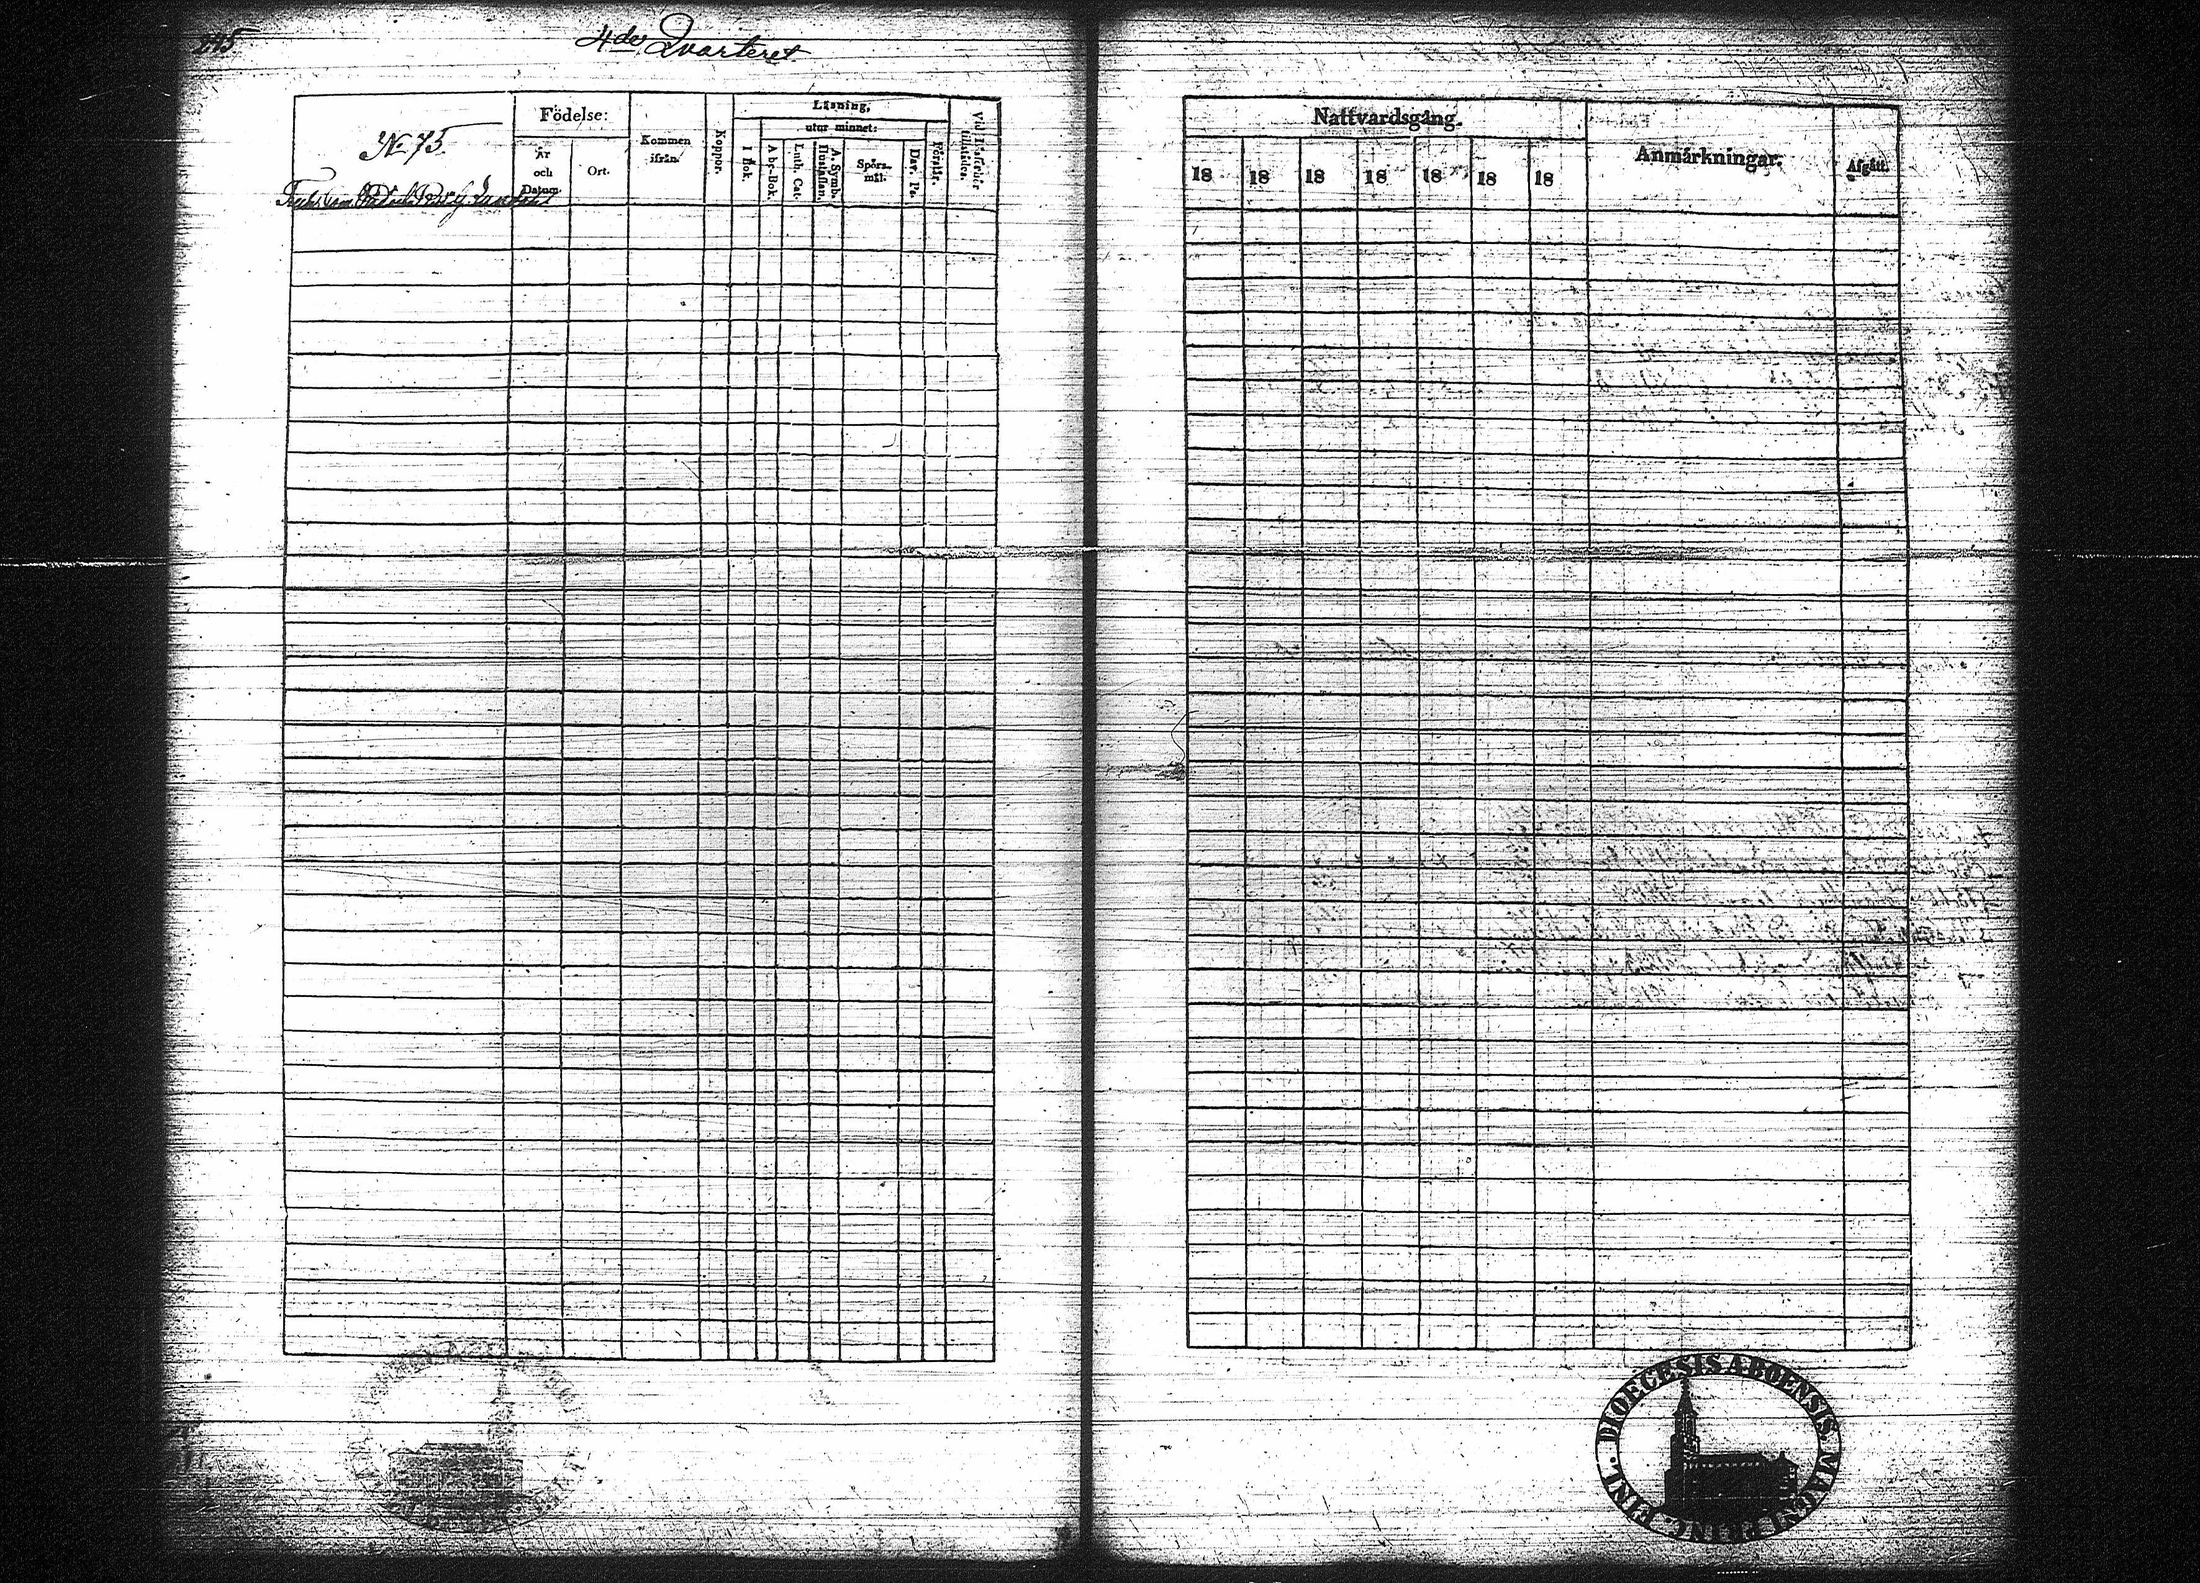 295
4de Qvarteret
No 75.
Födelse:
År och Datum.
Ort.
Kommen ifrån.
Koppor.
Läsning,
I Bok.
utur minnet:
A be-Bok.
Luth. Cat.
A. Symb. Hustaflan.
Spörsmål.
Dav. Ps.
Förstår.
Vid Läseförhör tillstädes.
Nattvardsgång.
18 18 18 18 18 18 18
Anmärkningar.
Afgått.
DIOECESIS ABOENSIS MAGNI PRINC. FINL.